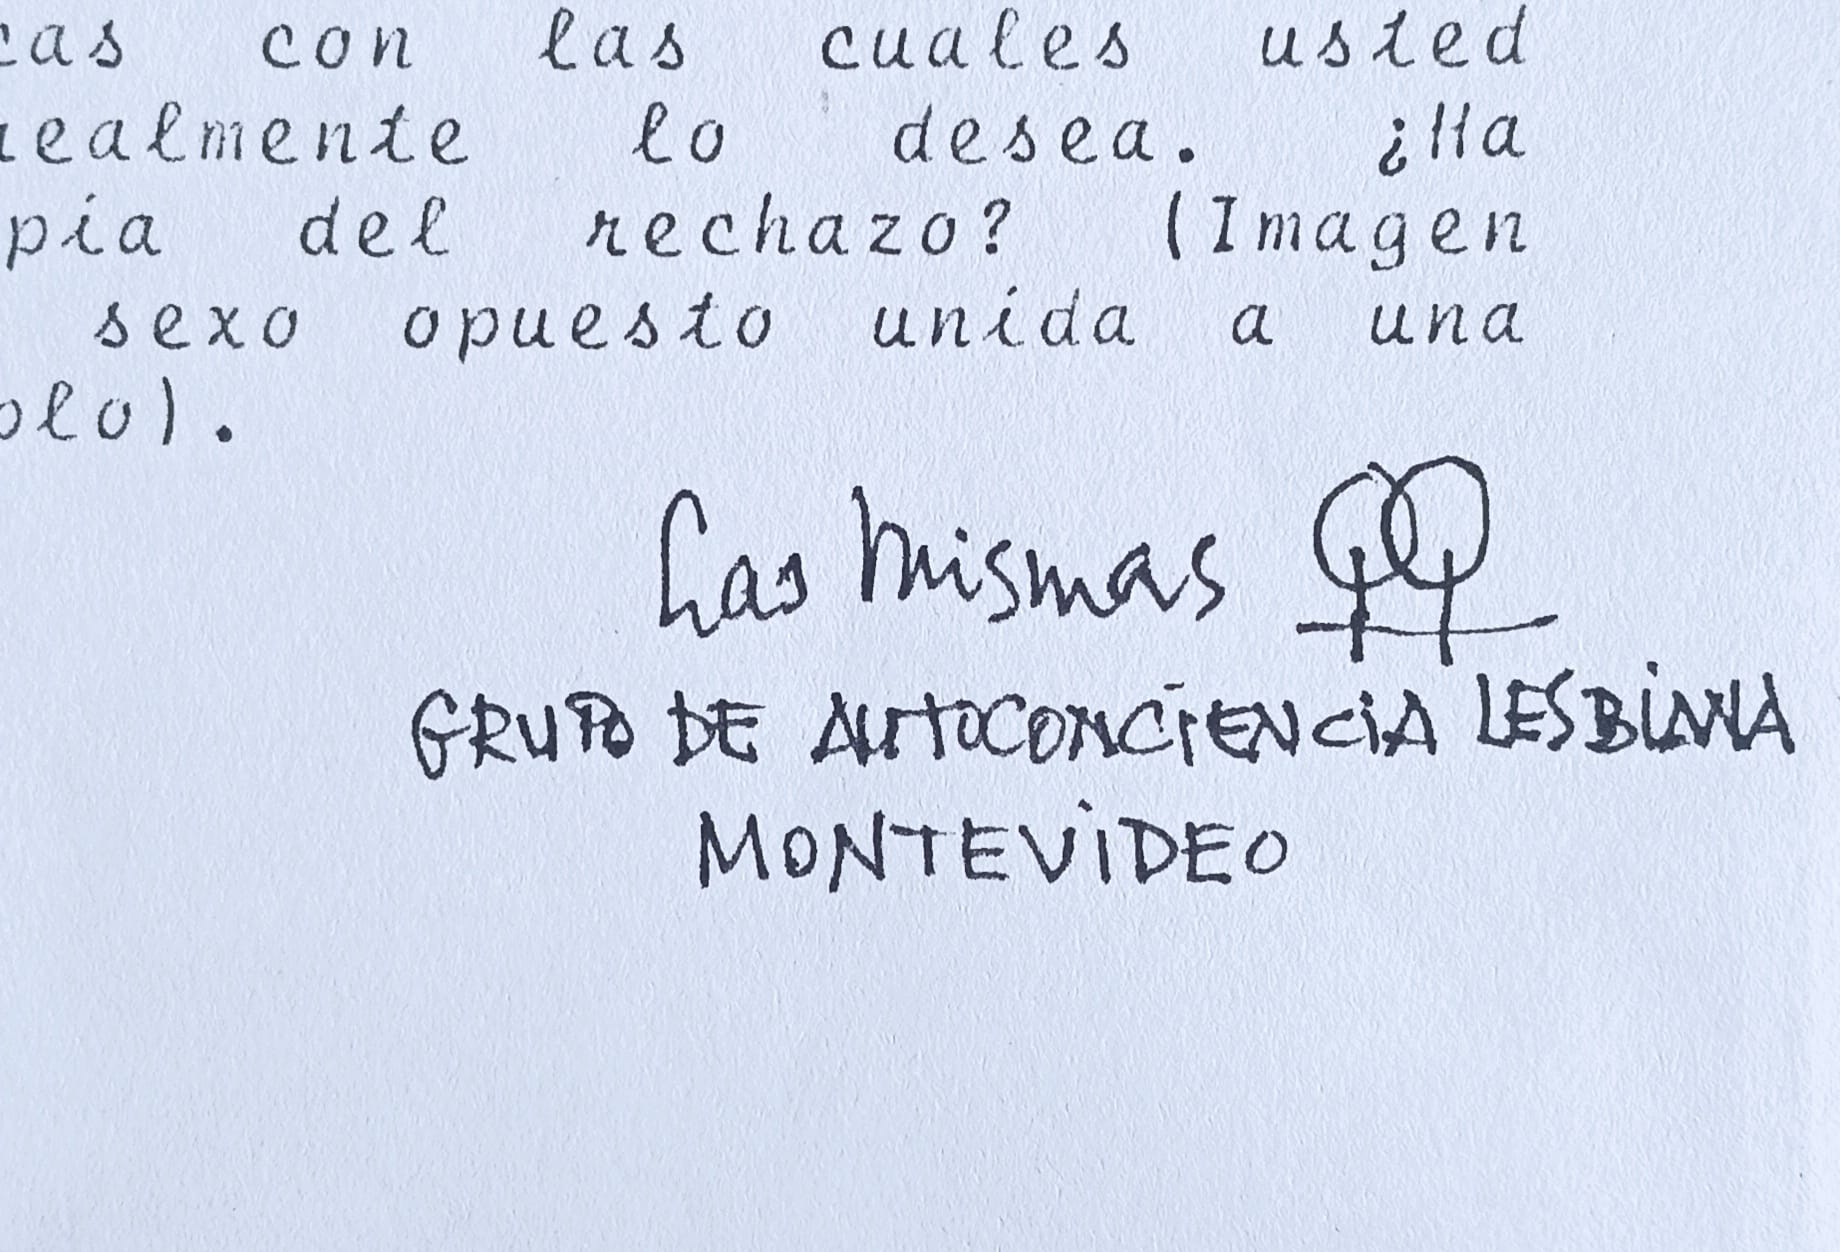 cas con las cuales usted
realmente lo desea. ¿Ha
pia del rechazo? (Imagen
sexo opuesto unida a una
plo).
Las Mismas
GRUPO DE AUTOCONCIENCIA LESBIANA
MONTEVIDEO